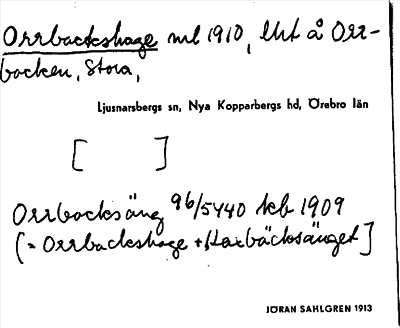 Orrbackshage ml 1910, lht å Orr-
backen, Stora,
Ljusnarsbergs sn, Nya Kopparbergs hd, Örebro län
[ ]
Orrbacksäng 96/5440 kb 1909
(= Orrbackshage + Haxbäcksänget]
JÖRAN SAHLGREN 1913